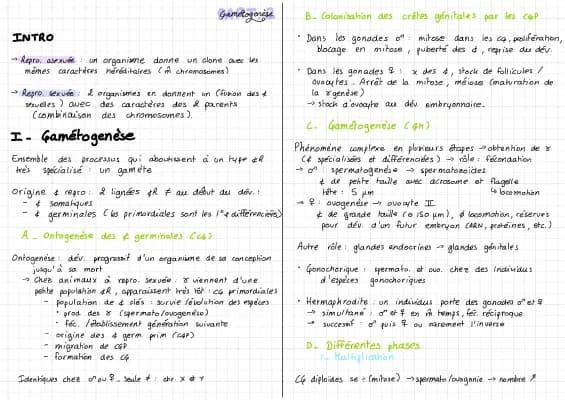 Gamétogenèse
INTRO
→ Repro. asexuée : un organisme donne un clone avec les
mêmes caractères héréditaires (= chromosomes)
→ Repro. sexuée : 2 organismes en donnent un (fusion des ¢
sexuelles) avec des caractères des 2 parents
(combinaison des chromosomes).
I - Gamétogenèse
Ensemble des processus qui aboutissent à un type ¢R
très spécialisé : un gamète
Origine ¢ repro : 2 lignées ¢R ≠ au début du dév. :
- ¢ somatiques
- ¢ germinales (les primordiales sont les 1° ¢ différenciées)
A - Ontogenèse des ¢ germinales (CG)
Ontogenèse : dév. progressif d'un organisme de sa conception
jusqu'à sa mort
→ Chez animaux à repro. sexuée : γ viennent d'une
petite population ¢R, apparaissent très tôt : CG primordiales
- population de ¢ clés : survie /évolution des espèces
• prod. des γ (spermato/ovogenèse)
• féc. /établissement génération suivante
- origine des ¢ germ prim (CGP)
- migration de CGP
- formation des CG
Identiques chez ♂ ou ♀. Seule ≠ : chr. X et Y
B - Colonisation des crêtes génitales par les CGP
• Dans les gonades ♂ : mitose dans les CG, prolifération,
blocage en mitose, puberté des ¢, reprise du dév.
• Dans les gonades ♀ : x des ¢, stock de follicules /
ovocytes. Arrêt de la mitose, méiose (maturation de
la γgenèse)
→ stock d'ovocyte au dév embryonnaire.
C - Gamétogenèse (GM)
Phénomène complexe en plusieurs étapes → obtention de γ
(¢ spécialisées et différenciées) → rôle : fécondation
→ ♂ : spermatogenèse → spermatozoïdes
¢ de petite taille avec acrosome et flagelle
tête : 5 μm ↳ locomotion
→ ♀ : ovogenèse → ovocyte II
¢ de grande taille (⌀ 150 μm), ¢ locomotion, réserves
pour dév. d'un futur embryon (ARN, protéines, etc.)
Autre rôle : glandes endocrines → glandes génitales
• Gonochorique : spermato. et ovo. chez des individus
d'espèces gonochoriques
• Hermaphrodite : un individu porte des gonades ♂ et ♀
→ simultané : ♂ et ♀ en m̂ temps, féc. réciproque
→ successif : ♂ puis ♀ ou rarement l'inverse
D - Différentes phases
1 - Multiplication
CG diploïdes se ÷ (mitose) → spermato/ovogonie → nombre ↗